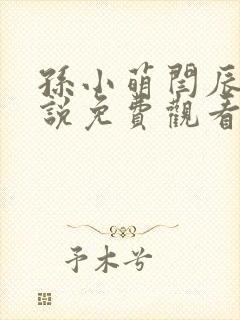 孫小萌閏辰
說免費觀看
予木兮